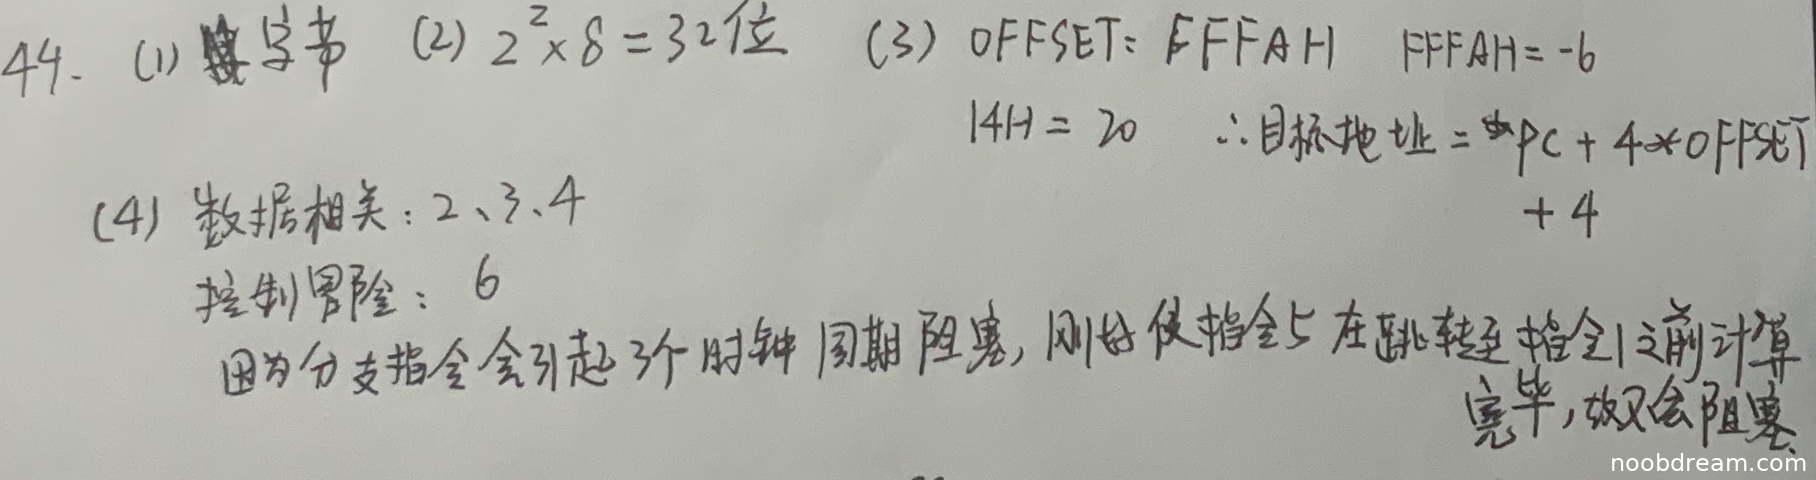 44. (1) 字节 (2) 2²×8=32位 (3) OFFSET: FFFAH FFFAH=-6
14H = 20 ∴目标地址 = PC + 4*OFFSET
+ 4
(4) 数据相关: 2、3、4
控制冒险: 6
因为分支指令会引起3个时钟周期阻塞, 刚好使指令5在跳转至指令1之前计算
完毕, 故不会阻塞.
noobdream.com